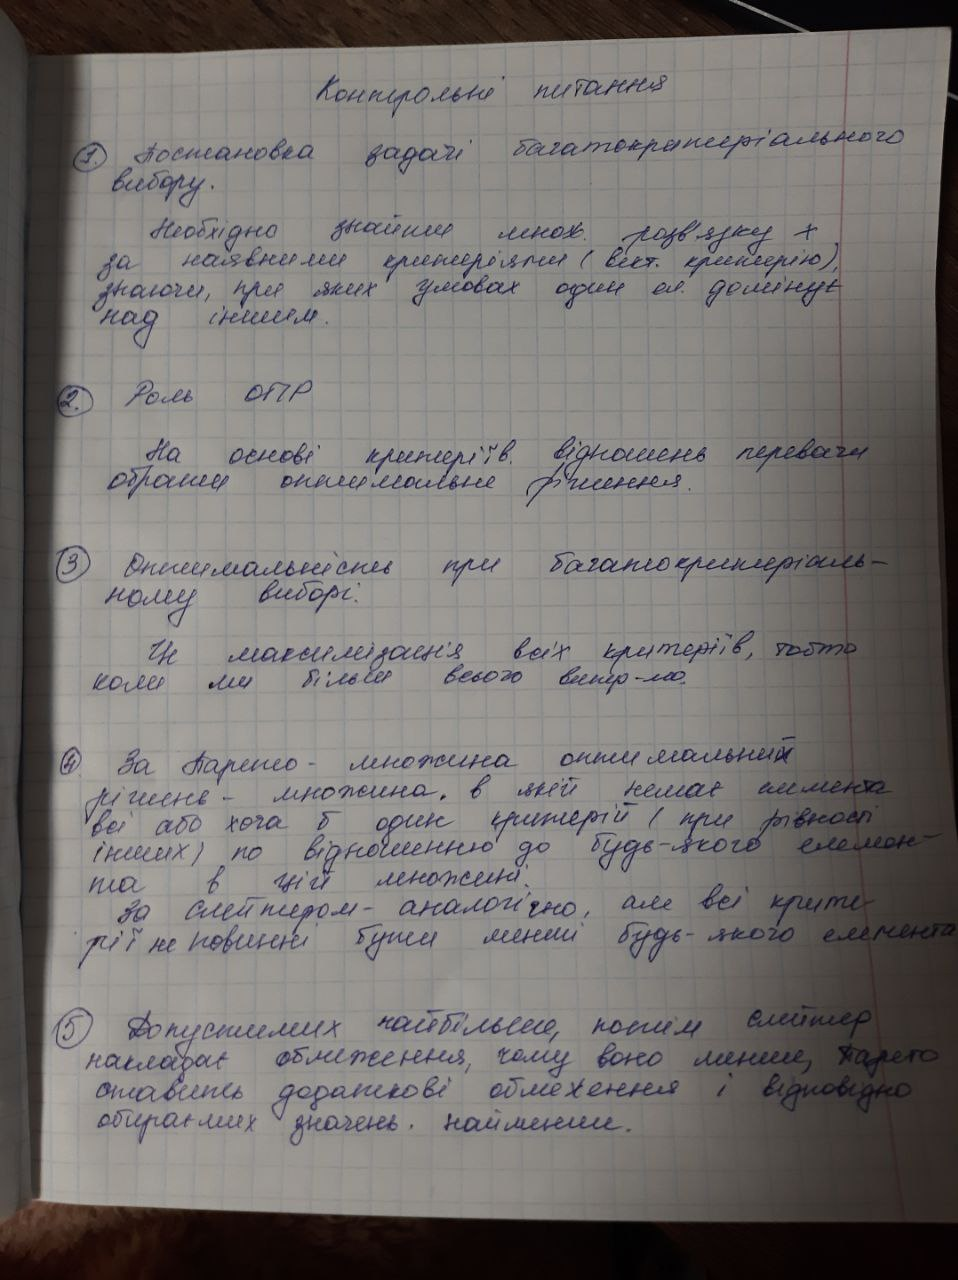 Контрольні питання
1. Постановка задачі багатокритеріального
вибору.
Необхідно знайти множ. розв'язку х
за наявними критеріями (вект. критерію),
знаючи, при яких умовах один ел. домінує
над іншим.
2. Роль ОПР
На основі критеріїв. відношень переваги
обрати оптимальне рішення.
3 Оптимальність при багатокритеріаль-
ному виборі.
Це максимізація всіх критеріїв, тобто
коли ми більш всього
4. За Парето - множина оптимальних
рішень - множина. в якій немає елемента
всі або хоча б один критерій (при рівності
інших) по відношенню до будь-якого елемен-
та в цій множині.
За Слейтером - аналогічно, але всі крите-
рії не повинні бути менші будь-якого елемента
5 Допустимих найбільше, потім Слейтер
накладає обмеження, чому воно менше, Парето
ставить додаткові обмеження і відповідно
обираємих значень. найменше.